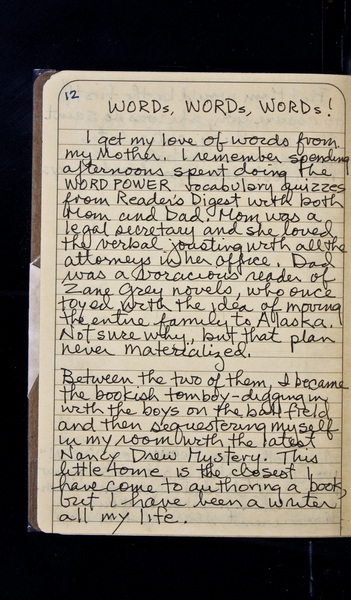 12
WORDs, WORDs, WORDs!
I get my love of words from
my Mother. I remember spending
afternoons spent doing the
WORD POWER vocabulary quizzes
from Reader's Digest with both
Mom and Dad. Mom was a
legal secretary and she loved
the verbal jousting with all the
attorneys in her office. Dad
was a voracious reader of
Zane Grey novels, who once
toyed with the idea of moving
the entire family to Alaska.
Not sure why, but that plan
never materialized.
Between the two of them, I became
the bookish tomboy - digging in
with the boys on the ball field
and then sequestering myself
in my room with the latest
Nancy Drew Mystery. This
little tome is the closest I
have come to authoring a book,
but I have been a writer
all my life.